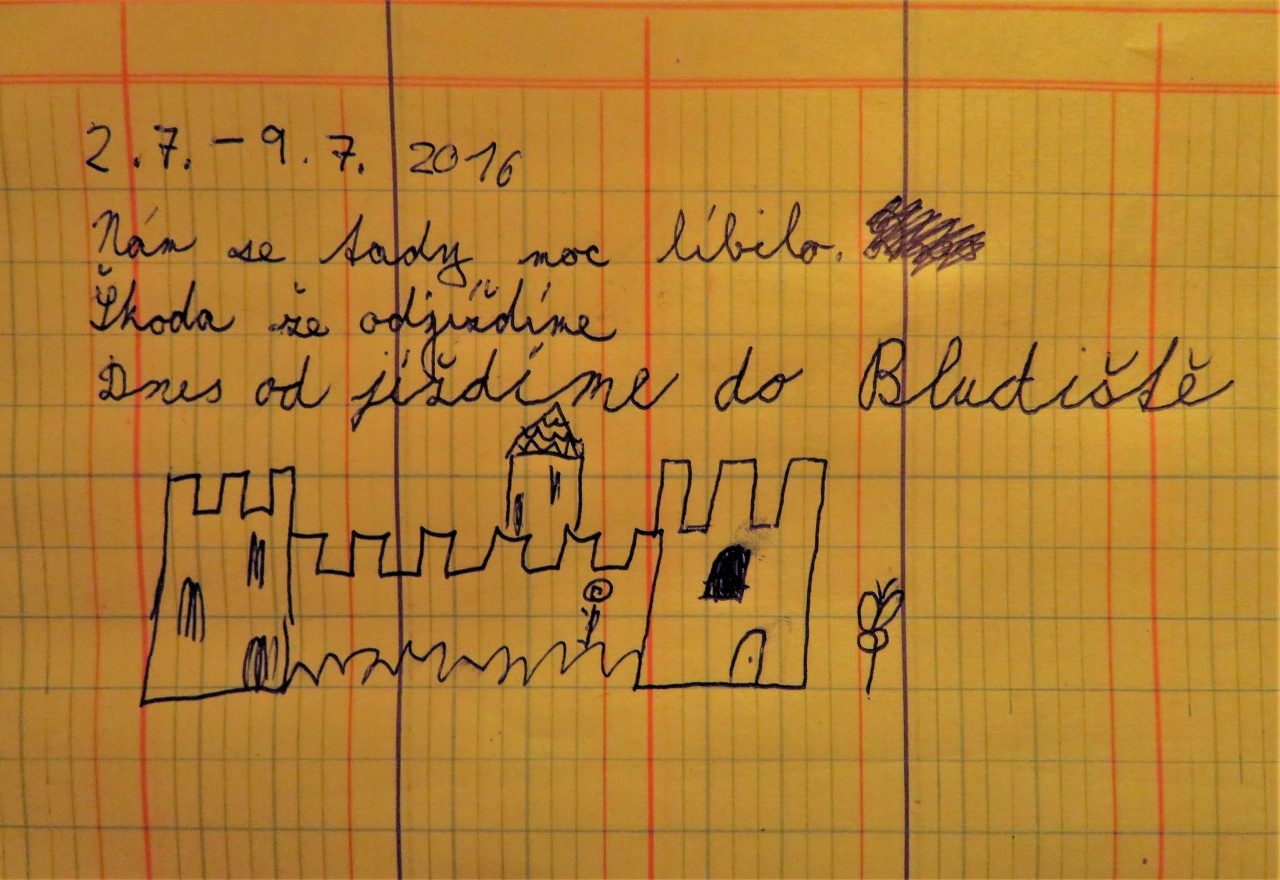 2.7. - 9.7. 2016
Nám se tady moc líbilo.
Škoda že odjíždíme
Dnes od jíždíme do Bludiště